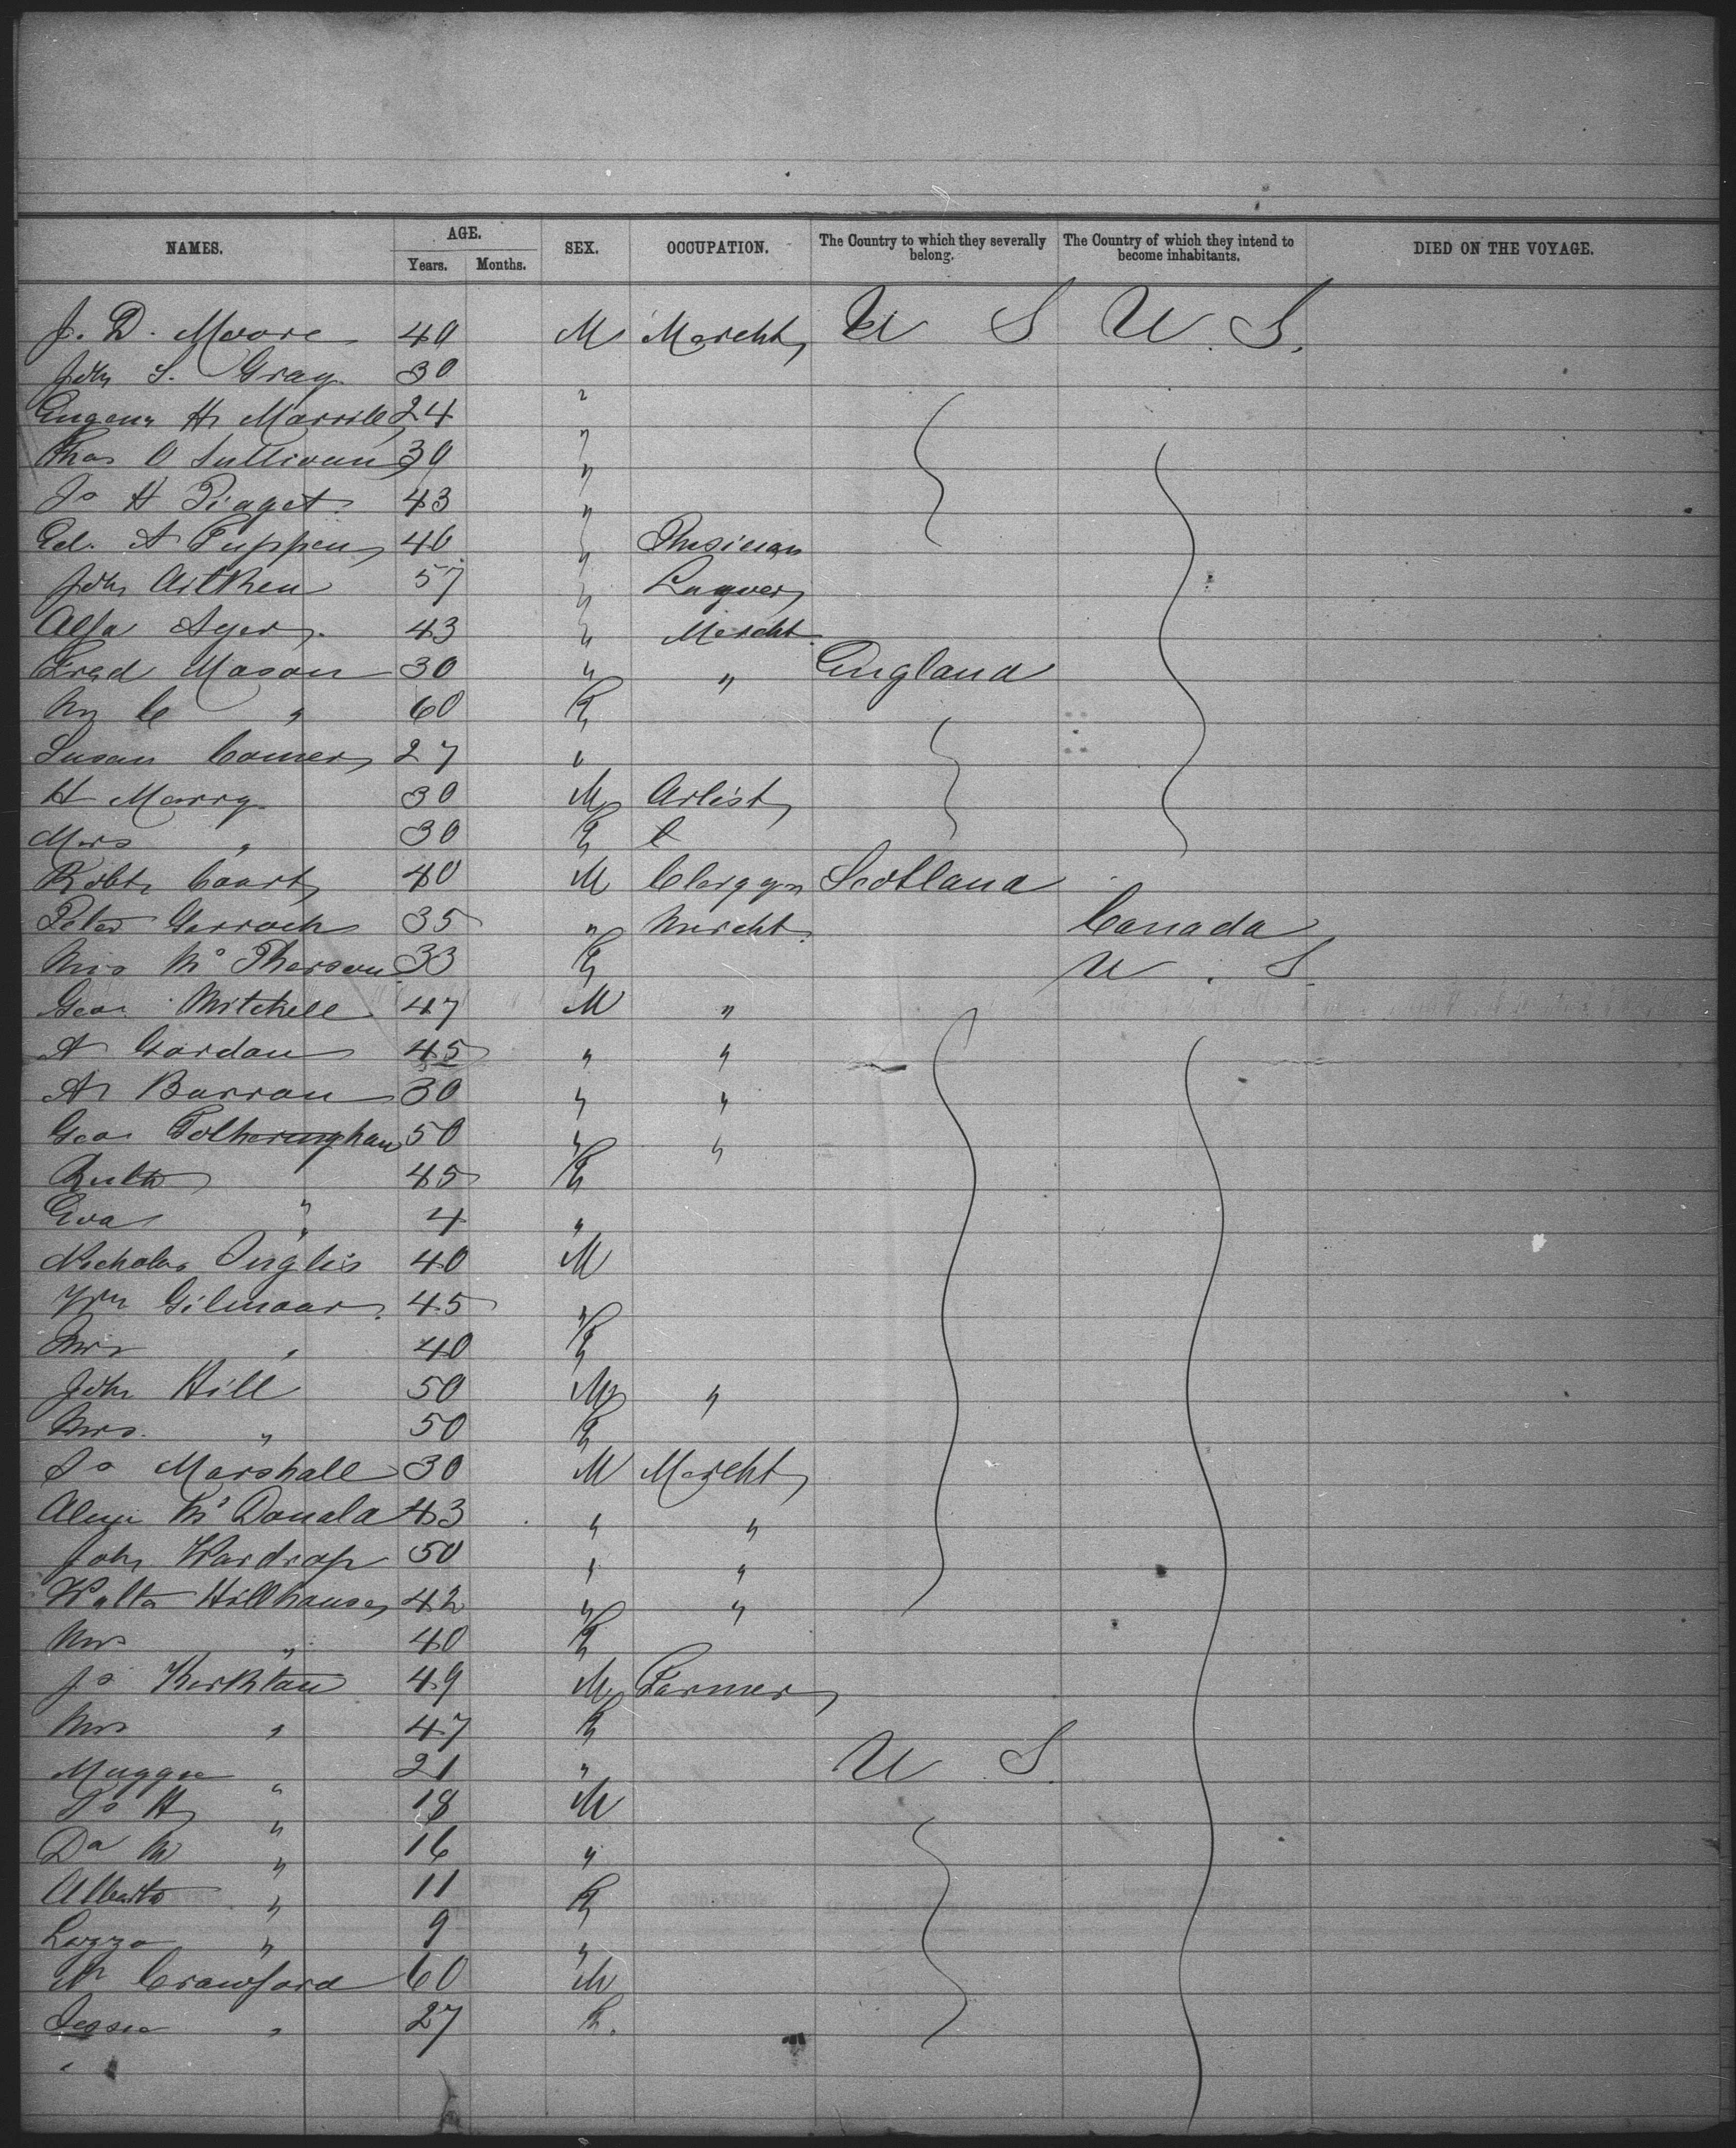 NAMES. AGE. SEX. OCCUPATION. The Country to which they severally belong. The Country of which they intend to become inhabitants. DIED ON THE VOYAGE.
Years. Months.
J. D. Moore 40 M Mercht U S U. S.
John S. Gray 30
H. 24 "
Thos O Sullivan 39 "
Js H Piaget 43 "
Ed. A Tuppen 40 " Phesician
John Aitken 57 " Lawyer
Ayer 43 " Mercht
Fred Mason 30 " " England
" 60 F
Susan Comer 27 "
H Marry 30 M Artist
Mrs " 30 F
Robt 40 M Clergyn Scotland
Peter Garroch 35 " Mercht. Canada
Mrs Mc Pherson 33 F U. S.
Geo. Mitchell 47 M "
A Gordon 45 " "
A Barron 30 " "
Geo. Fotheringham 50 " "
Ruth 45 F
Eva " 4 "
Nicholas Inglis 40 M
Wm Gilmoar. 45 "
Mrs " 40 F
John Hill 50 M "
Mrs. " 50 F
Js Marshall 30 M Mercht
Mc Donald 43 " "
John Wardrop 50 " "
Walter Hillhouse 42 " "
Mrs " 40 F
Js 49 M Farmer
Mrs " 47 F
Maggie " 21 " U S.
Js H " 18 M
Da M " 16 "
Alberta " 11 F
Lizzie " 9 "
Crawford 60 M
Jessie " 27 F.